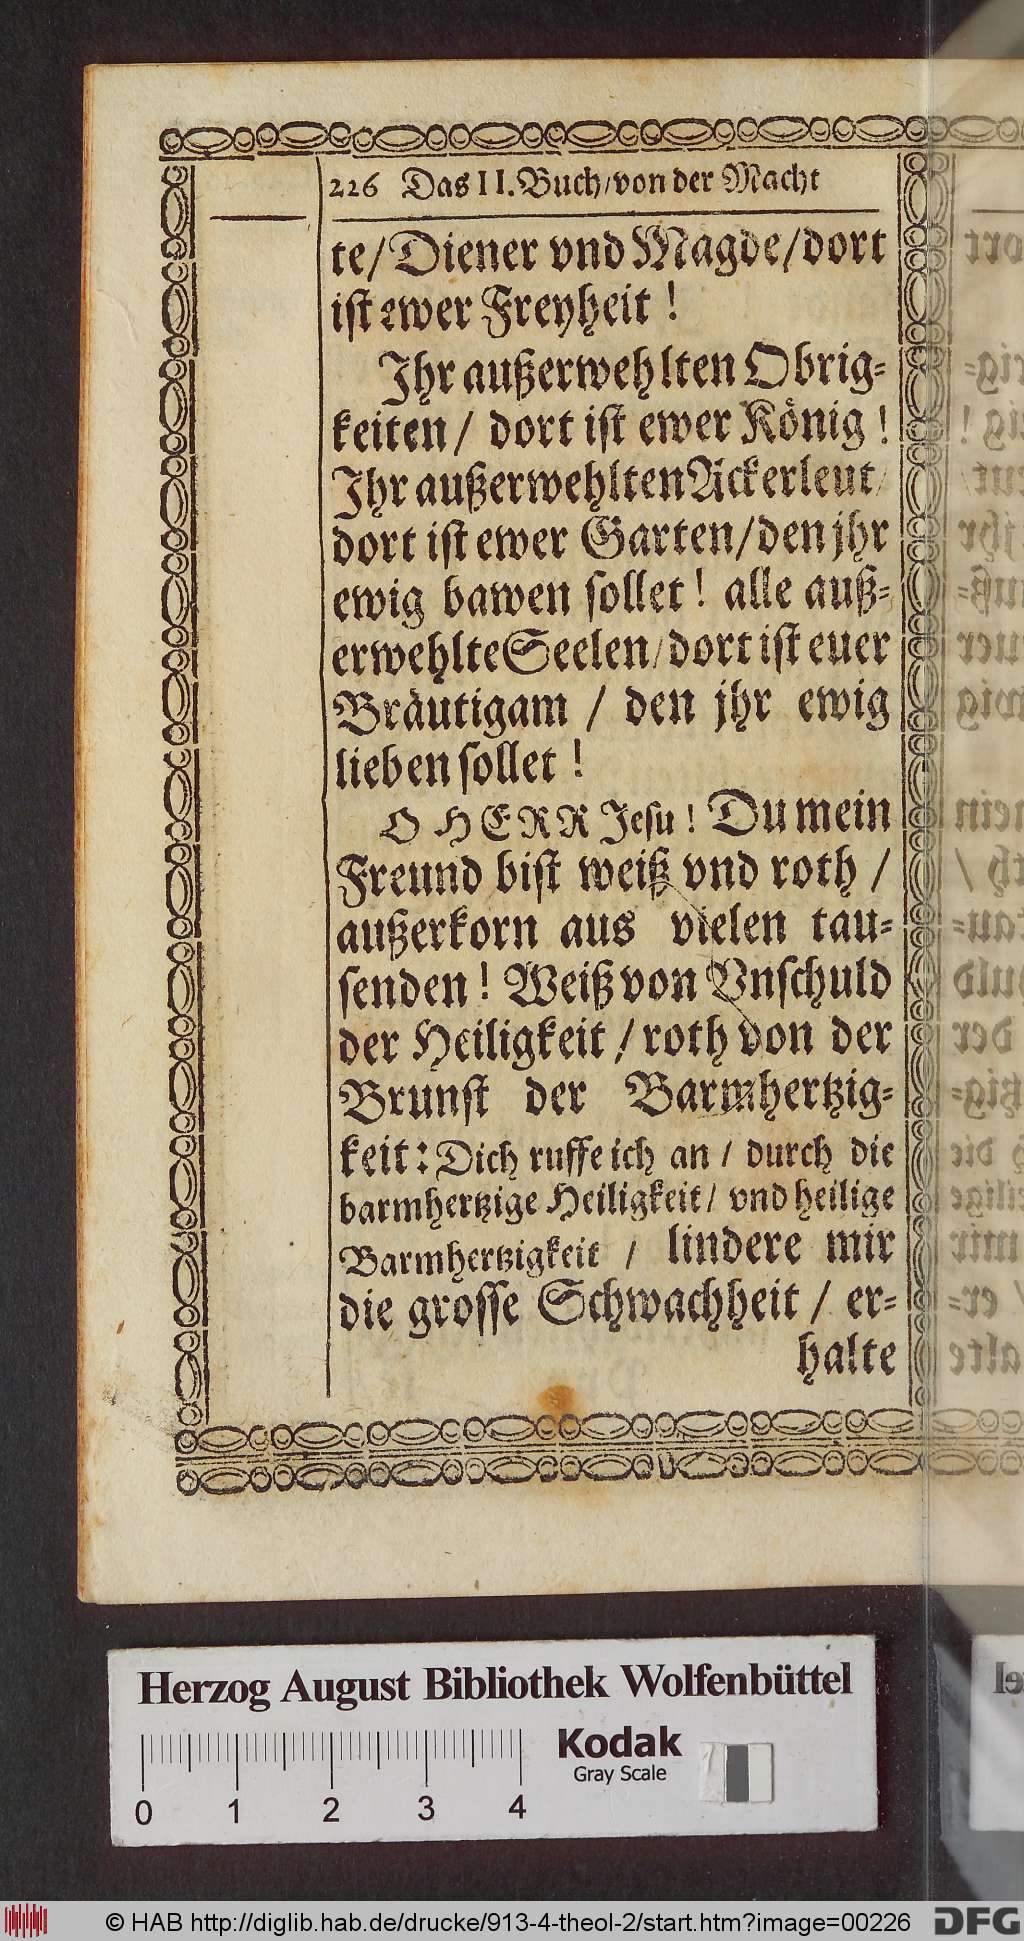 226 Das II. Buch/von der Macht
te/Diener vnd Magde/dort
ist ewer Freyheit !
Ihr außerwehlten Obrig-
keiten / dort ist ewer König !
Ihr außerwehlten Ackerleut/
dort ist ewer Garten/den jhr
ewig bawen sollet ! alle auß-
erwehlte Seelen/dort ist euer
Bräutigam / den jhr ewig
lieben sollet !
O HERR Jesu ! Du mein
Freund bist weiß vnd roth /
außerkorn aus vielen tau-
senden ! Weiß von Vnschuld
der Heiligkeit / roth von der
Brunst der Barmhertzig-
keit: Dich ruffe ich an / durch die
barmhertzige Heiligkeit/ vnd heilige
Barmhertzigkeit / lindere mir
die grosse Schwachheit / er-
halte
Herzog August Bibliothek Wolfenbüttel
Kodak
Gray Scale
0 1 2 3 4
© HAB http://diglib.hab.de/drucke/913-4-theol-2/start.htm?image=00226 DFG